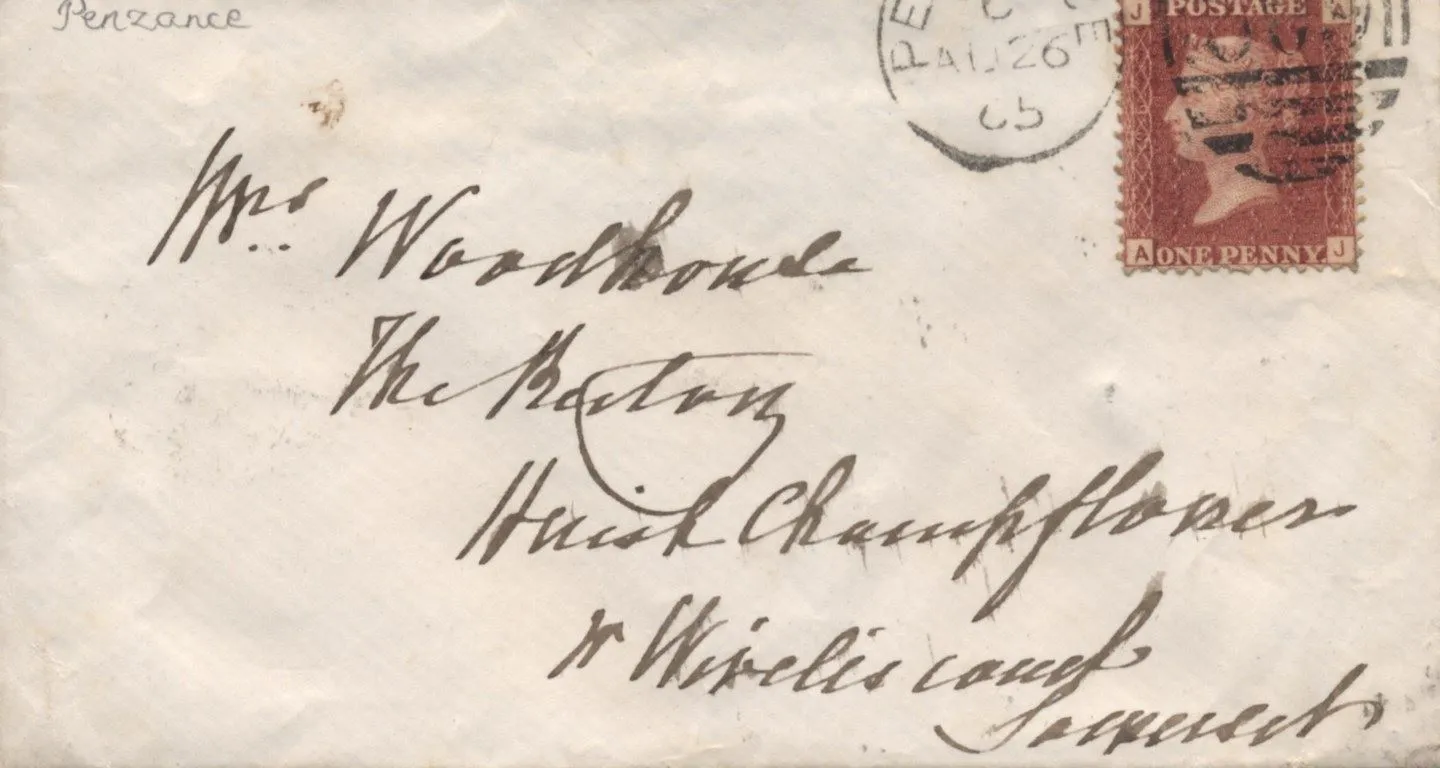 Penzance
PE C E
AU 26
65
J POSTAGE A
A ONE PENNY J
Mrs. Woodhouse
The Rectory
Huish Champflower
nr Wiveliscomb
Somerset